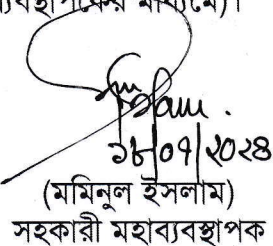 ব্যবস্থাপকের মাধ্যমে)।
১৮|০৭|২০২৪
(মমিনুল ইসলাম)
সহকারী মহাব্যবস্থাপক